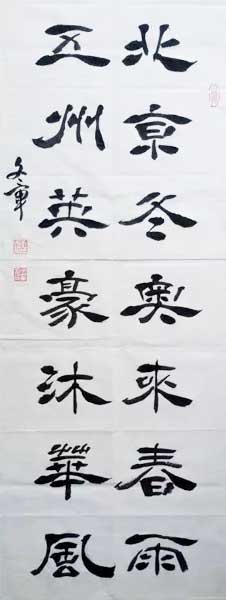 北京冬奥來春雨
五州英豪沐華風
文軍